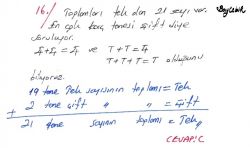 16./ Toplamları tek olan 21 sayı var.
En çok kaç tanesi çift diye
soruluyor.
Ç+Ç=Ç ve T+T=Ç
T+T+T=T olduğunu
biliyoruz.
19 tane Tek sayısının toplamı = Tek
+ 2 tane çift " " = çift
21 tane sayının toplamı = Tek
(CEVAP: C